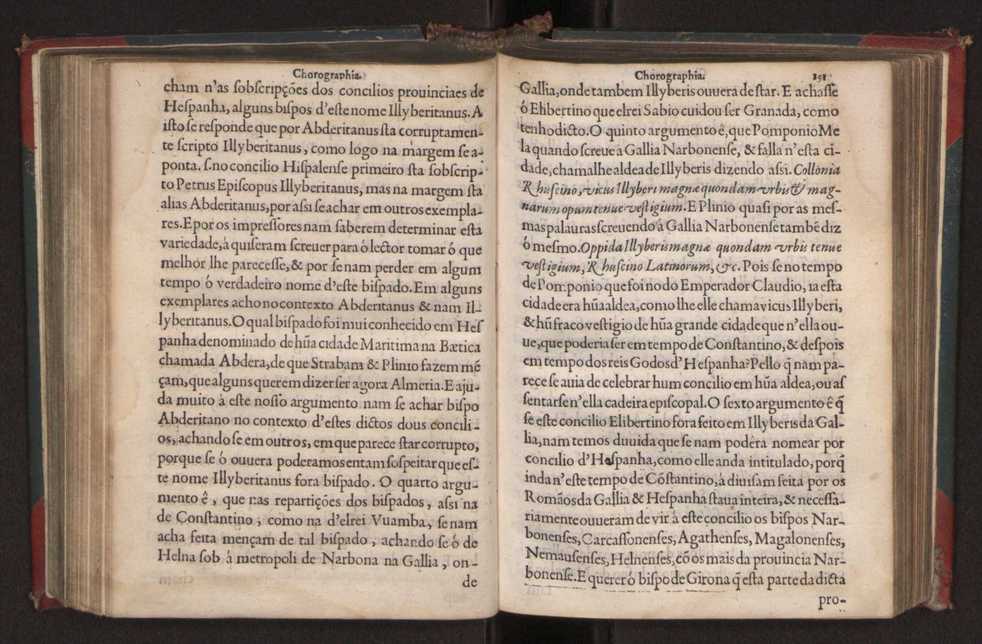 Chorographia.
cham n'as ſobſcripções dos concilios prouinciaes de
Heſpanha, alguns biſpos d'eſte nome Illyberitanus. A
iſto ſe reſponde que por Abderitanus ſta corruptamen-
te ſcripto Illyberitanus, como logo na margem ſe a-
ponta. ſ. no concilio Hiſpalenſe primeiro ſta ſobſcrip-
to Petrus Epiſcopus Illyberitanus, mas na margem ſta
alias Abderitanus, por aſsi ſe achar em outros exempla-
res. E por os impreſſores nam ſaberem determinar eſta
variedade, à quiſeram ſcreuer para ó lector tomar ó que
melhor lhe pareceſſe, & por ſe nam perder em algum
tempo ó verdadeiro nome d'eſte biſpado. Em alguns
exemplares acho no contexto Abderitanus & nam Il-
lyberitanus. O qual biſpado foi mui conhecido em Heſ
panha denominado de hũa cidade Maritima na Bætica
chamada Abdera, de que Strabam & Plinio fazem mẽ
çam, que alguns querem dizer ſer agora Almeria. E aju-
da muito à eſte noſſo argumento nam ſe achar biſpo
Abderitano no contexto d'eſtes dictos dous concili-
os, achando ſe em outros, em que parece ſtar corrupto,
porque ſe ó ouuera poderamos entam ſoſpeitar que eſ-
te nome Illyberitanus fora biſpado. O quarto argu-
mento ê, que nas repartições dos biſpados, aſsi na
de Conſtantino, como na d'elrei Vuamba, ſe nam
acha feita mençam de tal biſpado, achando ſe ó de
Helna ſob à metropoli de Narbona na Gallia, on-
de
Chorographia. 151
Gallia, onde tambem Illyberis ouuera de ſtar. E achaſſe
ó Ehbertino que elrei Sabio cuidou ſer Granada, como
tenho dicto. O quinto argumento ê, que Pomponio Me
la quando ſcreue à Gallia Narbonenſe, & falla n'eſta ci-
dade, chamalhe aldea de Illyberis dizendo aſsi. Collonia
Rhuſcino, vicus Illyberi magnæ quondam vrbis & mag-
narum opum tenue veſtigium. E Plinio quaſi por as meſ-
mas palauras ſcreuendo à Gallia Narbonenſe tambẽ diz
ó meſmo. Oppida Illyberis magnæ quondam vrbis tenue
veſtigium, Rhuſcino Latinorum, &c. Pois ſe no tempo
de Pomponio que foi no do Emperador Claudio, ia eſta
cidade era hũa aldea, como lhe elle chama vicus Illyberi,
& hũ fraco veſtigio de hũa grande cidade que n'ella ou-
ue, que poderia ſer em tempo de Conſtantino, & deſpois
em tempo dos reis Godos d'Heſpanha? Pello q̃ nam pa-
rece ſe auia de celebrar hum concilio em hũa aldea, ou aſ
ſentarſe n'ella cadeira epiſcopal. O ſexto argumento ê q̃
ſe eſte concilio Elibertino fora feito em Illyberis da Gal-
lia, nam temos duuida que ſe nam podèra nomear por
concilio d'Heſpanha, como elle anda intitulado, porq̃
inda n'eſte tempo de Cõſtantino, à diuiſam feita por os
Romãos da Gallia & Heſpanha ſtaua inteira, & neceſſa-
riamente ouueram de vir à eſte concilio os biſpos Nar-
bonenſes, Carcaſſonenſes, Agathenſes, Magalonenſes,
Nemauſenſes, Helnenſes, cõ os mais da prouincia Nar-
bonenſe. E querer ó biſpo de Girona q̃ eſta parte da dicta
pro-